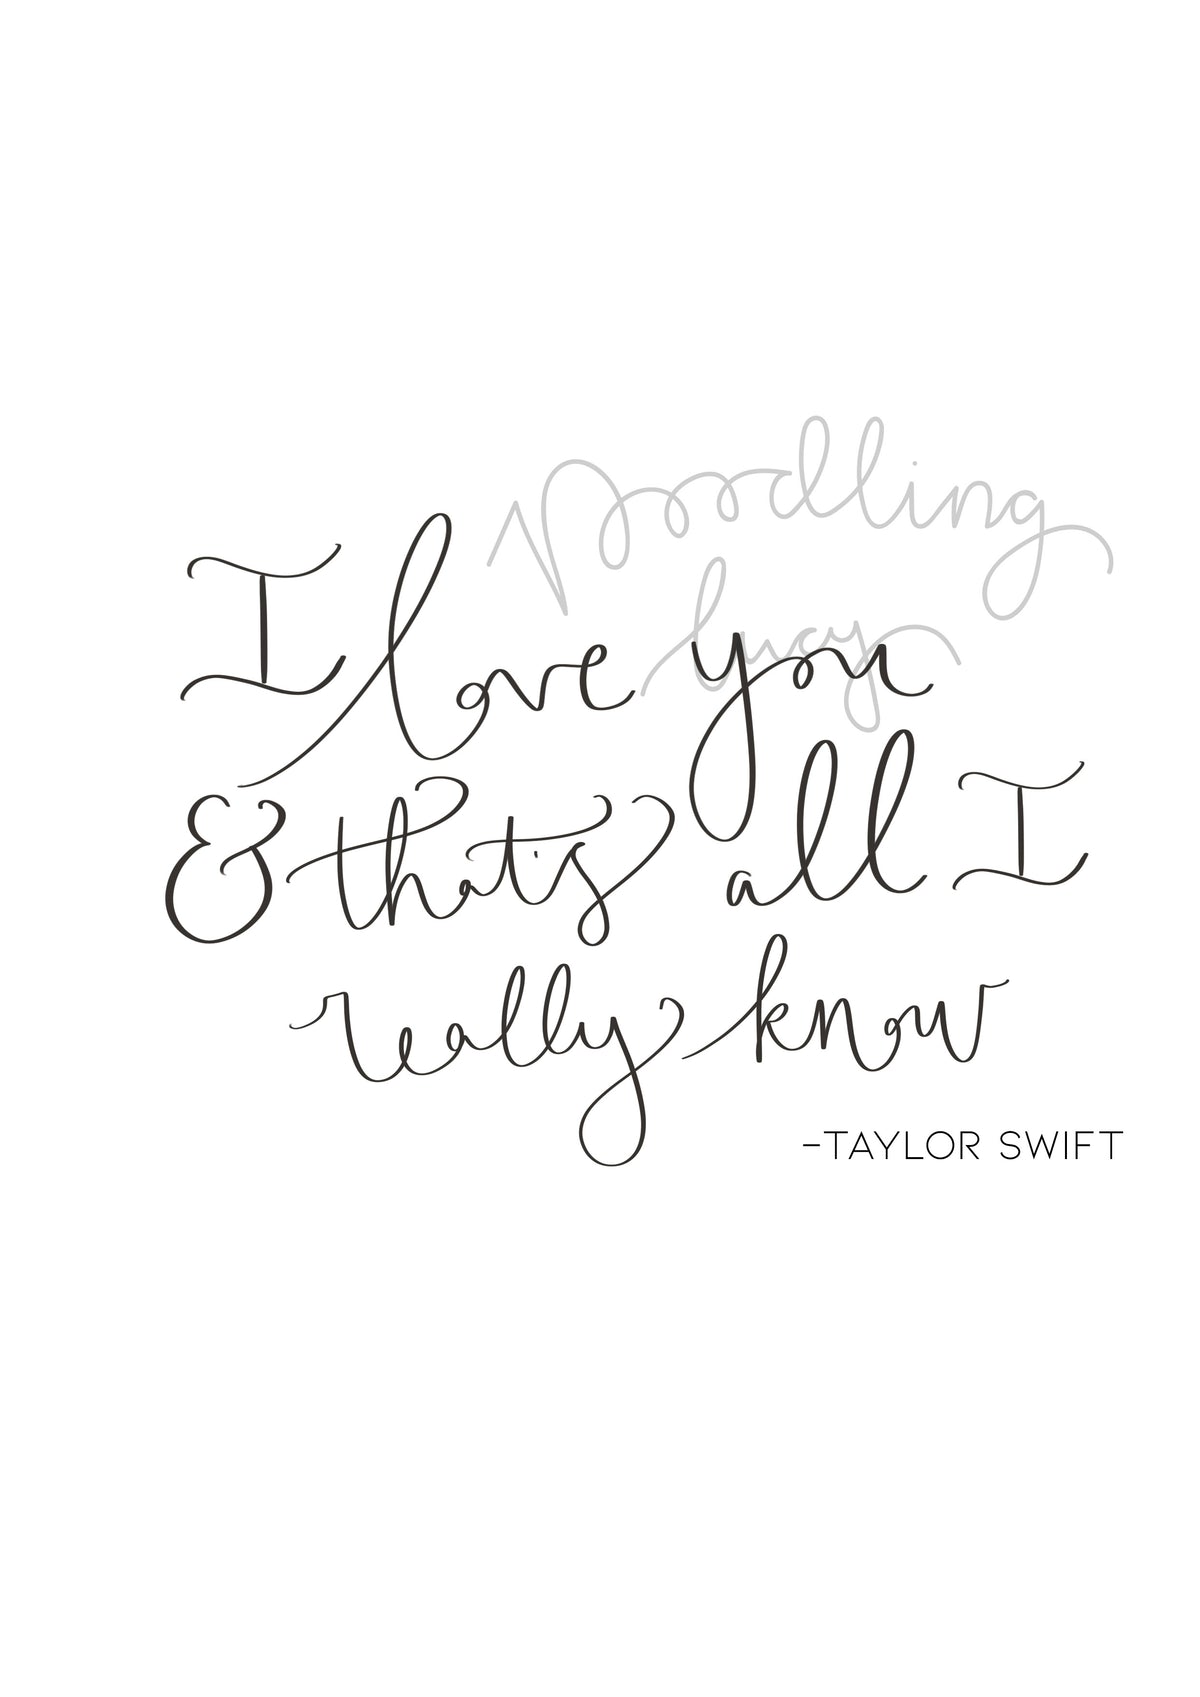 noodling
lucy
I love you
& that's all I
really know
-TAYLOR SWIFT